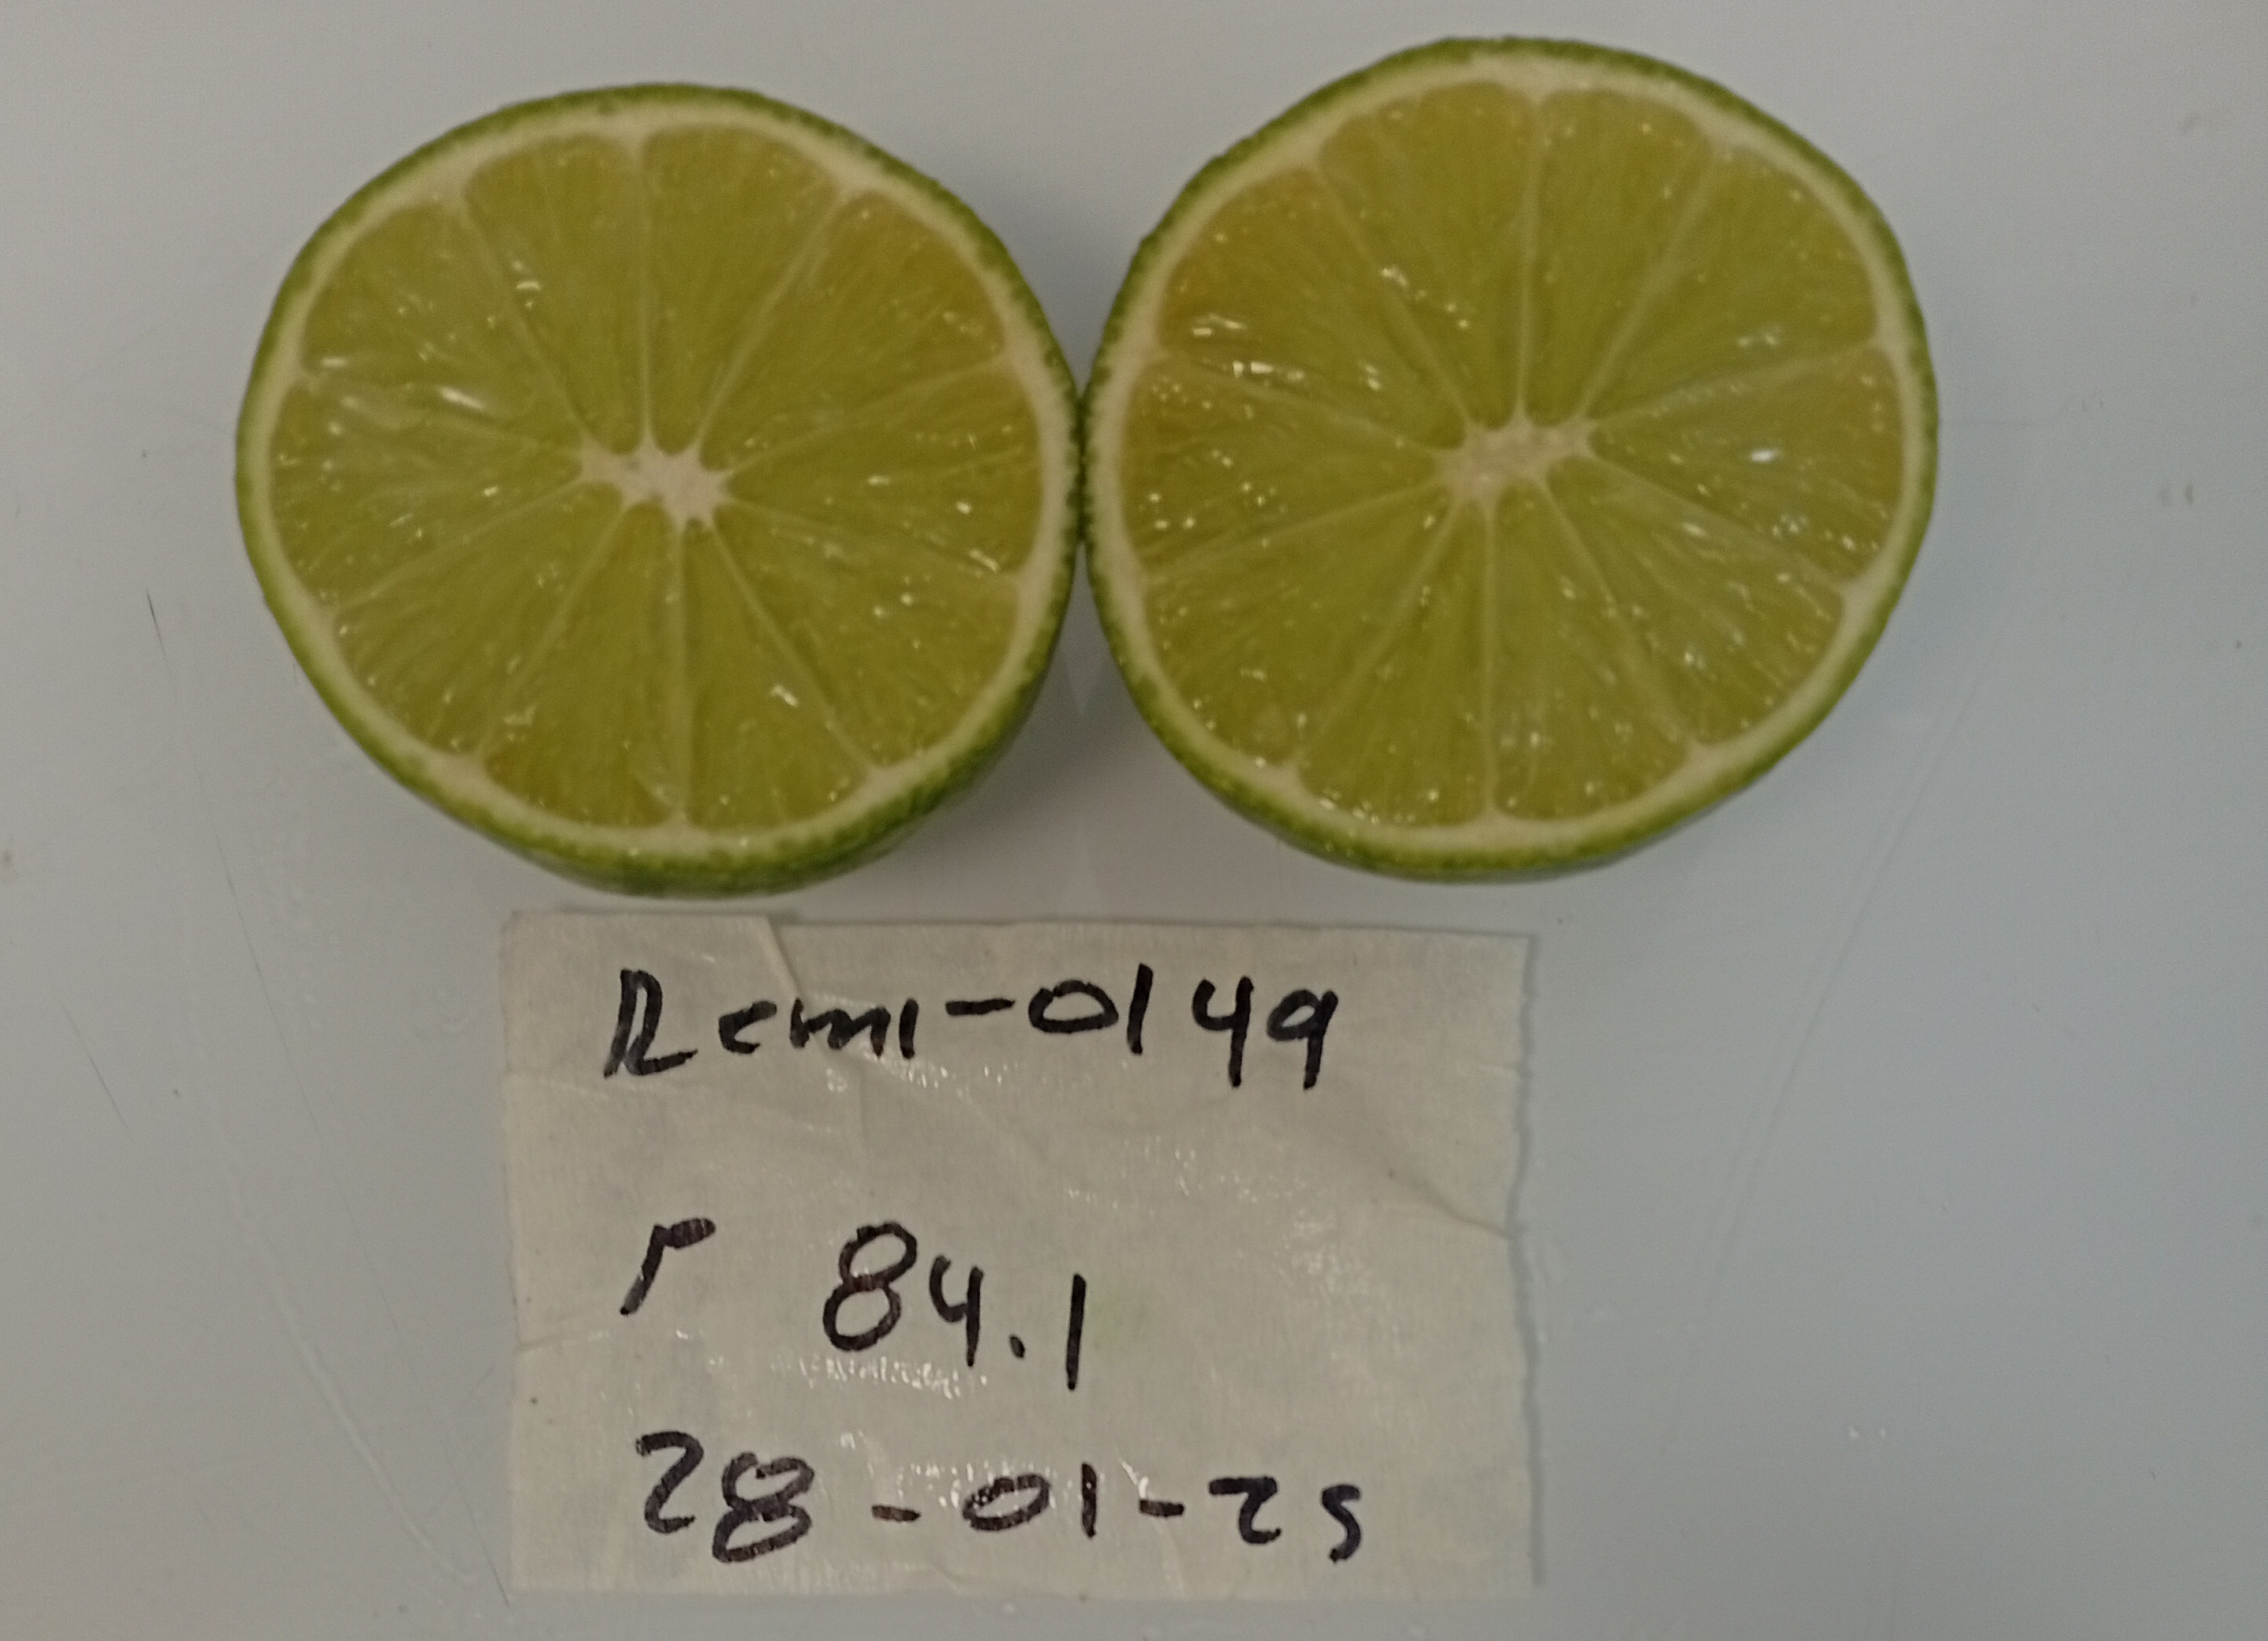 Remi-0149
r 84.1
28-01-25